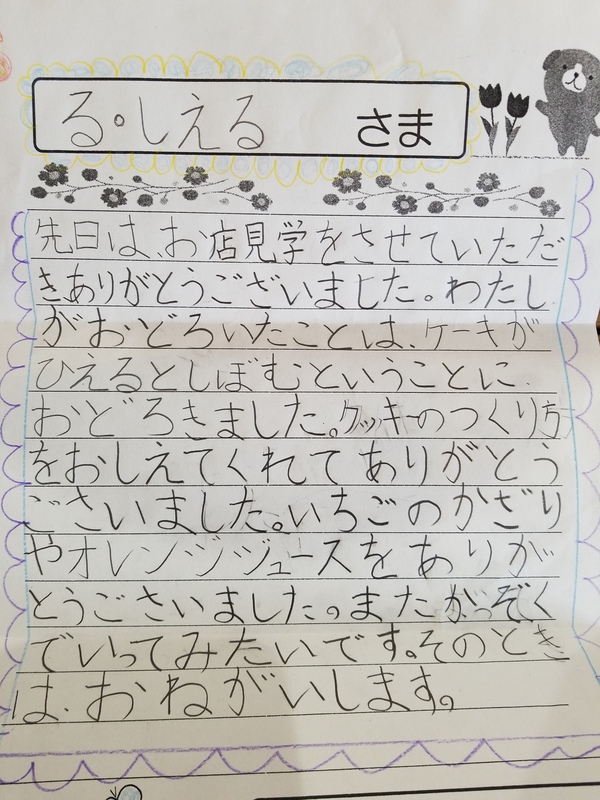 る・しえる さま
先日は、お店見学をさせていただ
きありがとうございました。わたし
がおどろいたことは、ケーキが
ひえるとしぼむということに、
おどろきました。クッキーのつくり方
をおしえてくれてありがとう
ございました。いちごのかざり
やオレンジジュースをありが
とうございました。またかぞく
でいってみたいです。そのとき
は、おねがいします。